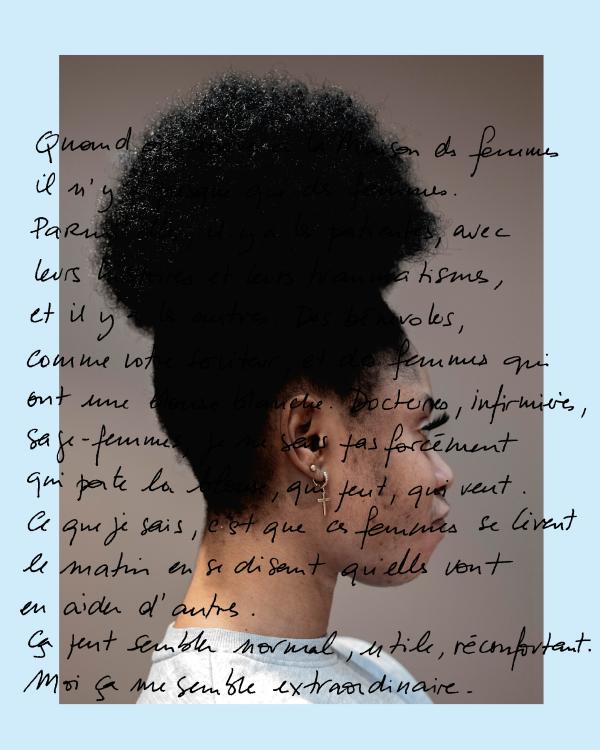 Quand la Maison des femmes
il n'y presque que des femmes.
Parmi elles, il y a les patientes, avec
leurs histoires et leurs traumatismes,
et il y a les autres. Des bénévoles,
comme votre serviteur, et des femmes qui
ont une blouse blanche. Docteures, infirmières,
sage-femmes, je ne sais pas forcément
qui porte la blouse, qui peut, qui veut.
Ce que je sais, c'est que ces femmes se lèvent
le matin en se disant qu'elles vont
en aider d'autres.
Ça peut sembler normal, utile, réconfortant.
Moi ça me semble extraordinaire.